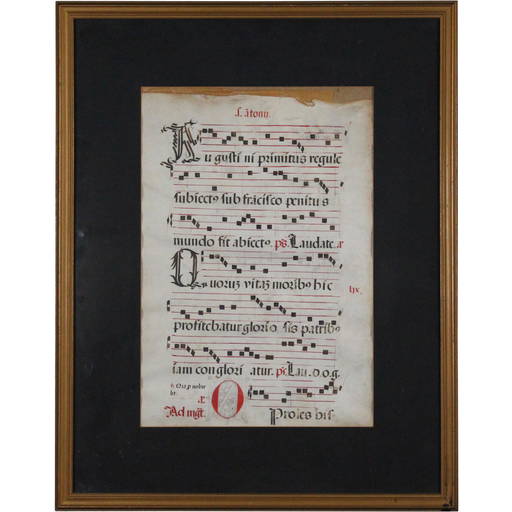 S. Ātonij.
Augusti ni primitus regule
subiectꝰ sub frācisco penitus
mundo fit abiectꝰ. ps. Laudate.
Quoruz vitaz moribꝰ hic
lix.
profitebatur gloriosis patribꝰ
iam conglori atur. ps. Lau. o. o. g.
Ad mgt. O Proles his